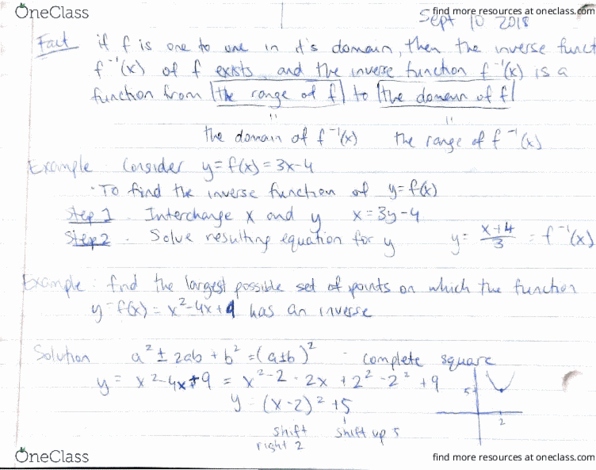 OneClass
find more resources at oneclass.com
Sept 10 2018
Fact if f is one to one in it's domain, then the inverse funct
f⁻¹(x) of f exists and the inverse function f⁻¹(x) is a
function from |the range of f| to |the domain of f|
the domain of f⁻¹(x) the range of f⁻¹(x)
Example Consider y=f(x)=3x-4
· To find the inverse function of y=f(x)
Step 1. Interchange x and y x=3y-4
Step 2. Solve resulting equation for y y= x+4/3 = f⁻¹(x)
Example: find the largest possible set of points on which the function
y=f(x)=x²-4x+9 has an inverse
Solution a² ± 2ab + b² = (a±b)² · complete square
y = x²-4x+9 = x²-2·2x+2²-2²+9
y = (x-2)²+5
5
2
shift right 2
shift up 5
OneClass
find more resources at oneclass.com